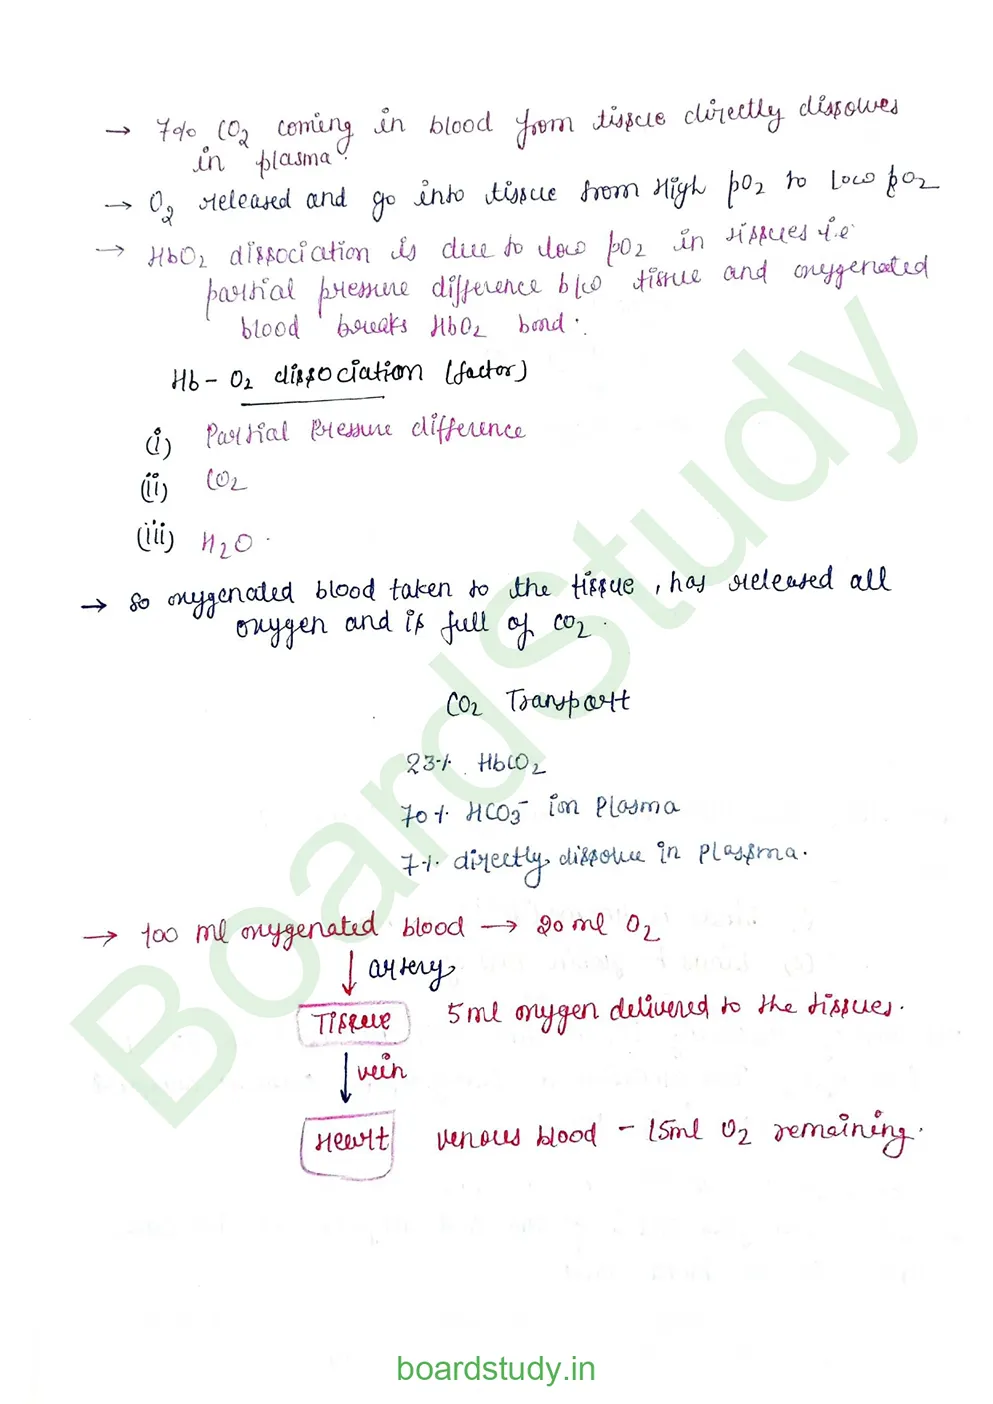 → 7% CO2 coming in blood from tissue directly dissolves
in plasma.
→ O2 released and go into tissue from High pO2 to Low pO2
→ HbO2 dissociation is due to low pO2 in tissues i.e
partial pressure difference b/w tissue and oxygenated
blood breaks HbO2 bond.
Hb - O2 dissociation (factor)
(i) Partial Pressure difference
(ii) CO2
(iii) H2O.
→ So oxygenated blood taken to the tissue, has released all
oxygen and is full of CO2.
CO2 Transport
23% HbCO2
70% HCO3- ion Plasma
7% directly dissolve in plasma.
→ 100 ml oxygenated blood → 20 ml O2
↓ artery
Tissue 5 ml oxygen delivered to the tissues.
↓ vein
Heart venous blood - 15ml O2 remaining.
BoardStudy
boardstudy.in